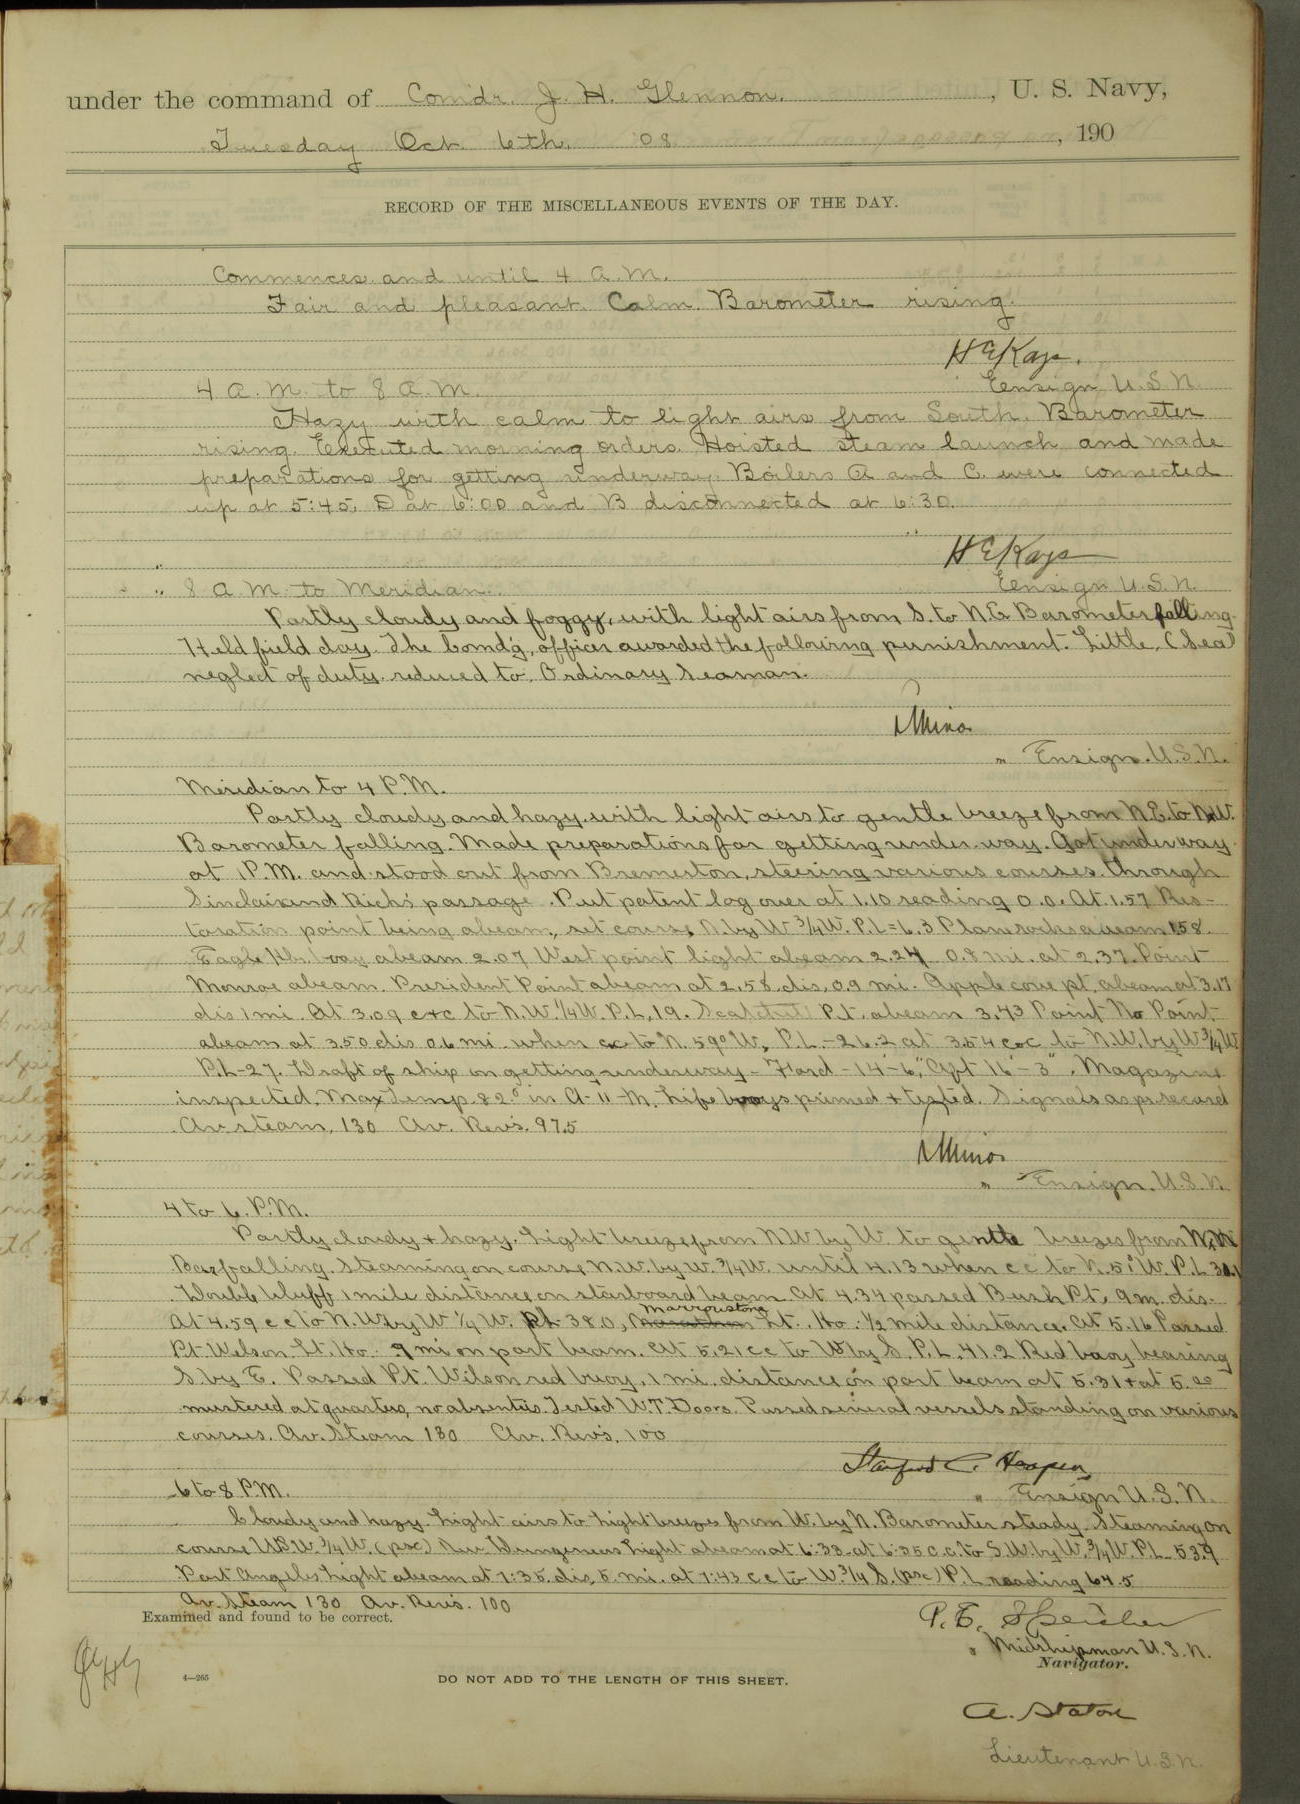 under the command of Comdr. J. H. Glennon. , U. S. Navy,
Tuesday Oct. 6th. 08 , 190
RECORD OF THE MISCELLANEOUS EVENTS OF THE DAY.
Commences and until 4 A.M.
Fair and pleasant. Calm. Barometer rising.
H E Kays.
4 A.M. to 8 A.M. Ensign U.S.N.
Hazy with calm to light airs from South. Barometer
rising. Executed morning orders. Hoisted steam launch and made
preparations for getting underway. Boilers A and C. were connected
up at 5:45, D at 6:00 and B disconnected at 6:30.
H E Kays
8 A.M. to Meridian. Ensign U.S.N.
Partly cloudy and foggy, with light airs from S. to N.E. Barometer falling.
Held field day. The Comd'g, officer awarded the following punishment. Little, (Sea)
neglect of duty, reduced to Ordinary Seaman.
Ensign. U.S.N.
Meridian to 4 P.M.
Partly cloudy and hazy, with light airs to gentle breeze from N.E. to N.W.
Barometer falling. Made preparations for getting under way. Got under way
at 1 P.M. and stood out from Bremerton, steering various courses. through
Sinclair and Rich's passage. Put patent log over at 1.10 reading 0.0. At 1.57 Res-
toration point being abeam, set course N. by W 3/4 W. P.L = 6.3 rocks abeam 1.58.
Eagle Hr. buoy abeam 2.07 West point light abeam 2.24 0.8 mi. at 2.37. Point
Monroe abeam. President Point abeam at 2.58 dis, 0.9 mi. Apple cove pt. abeam at 3.17
dis 1 mi. At 3.09 c+c to N.W. 1/4 W. P.L. 19. Pt. abeam 3.43 Point No Point
abeam at 3.50 dis 0.6 mi. when cc to N. 59° W, P.L. - 26.2 at 3.54 c c to N.W. by W 3/4 W
P.L - 27. Draft of ship on getting underway - Ford - 14'-6", Aft 16'-3". Magazine
inspected. Max Temp. 82° in A-11-M. Life buoys primed + tested. Signals as pr record
Av. steam, 130 Av. Revs. 97.5
Ensign. U.S.N.
4 to 6. P.M.
Partly cloudy + hazy. Light breeze from NW by W. to gentle breezes from
Bar falling. Steaming on course N.W. by W. 3/4 W. until 4.13 when c c to N. 51° W. P.L 30.1
Double bluff 1 mile distance on starboard beam. At 4.34 passed Bush Pt, 9 m. dis.
At 4.59 c c to N.W by W 1/4 W. pl. 38.0, Marrowstone Lt. Ho. 1/2 mile distance. At 5.16 Passed
Pt Wilson Lt. Ho. .9 mi on port beam. At 5.21 c c to W by S. P.L. 41.2 Red buoy bearing
S. by E. Passed Pt. Wilson red buoy, 1 mi. distance on port beam at 5.31 + at 5.
mustered at quarters, no absentees. Tested W.T. Doors. Passed several vessels standing on various
courses. Av. Steam 130 Av. Revs. 100
Stanford C. Hooper,
6 to 8 P.M. Ensign U.S.N.
Cloudy and hazy. Light airs to light breezes from W. by N. Barometer steady. Steaming on
course 3/4 W. (psc) New Dungeness Light abeam at 6:33 - at 6:35 c.c. to S.W. by W. 3/4 W. P.L. 53.9
Port Angeles Light abeam at 7:35. dis, 5 mi. at 7:43 c c to W. 3/4 S. (psc) P.L reading 64.5
Av. Steam 130 Av. Revs. 100
Examined and found to be correct. P. E. Speicher
Midshipman U.S.N.
Navigator.
JHG
4—265
DO NOT ADD TO THE LENGTH OF THIS SHEET.
A. Staton
Lieutenant U.S.N.